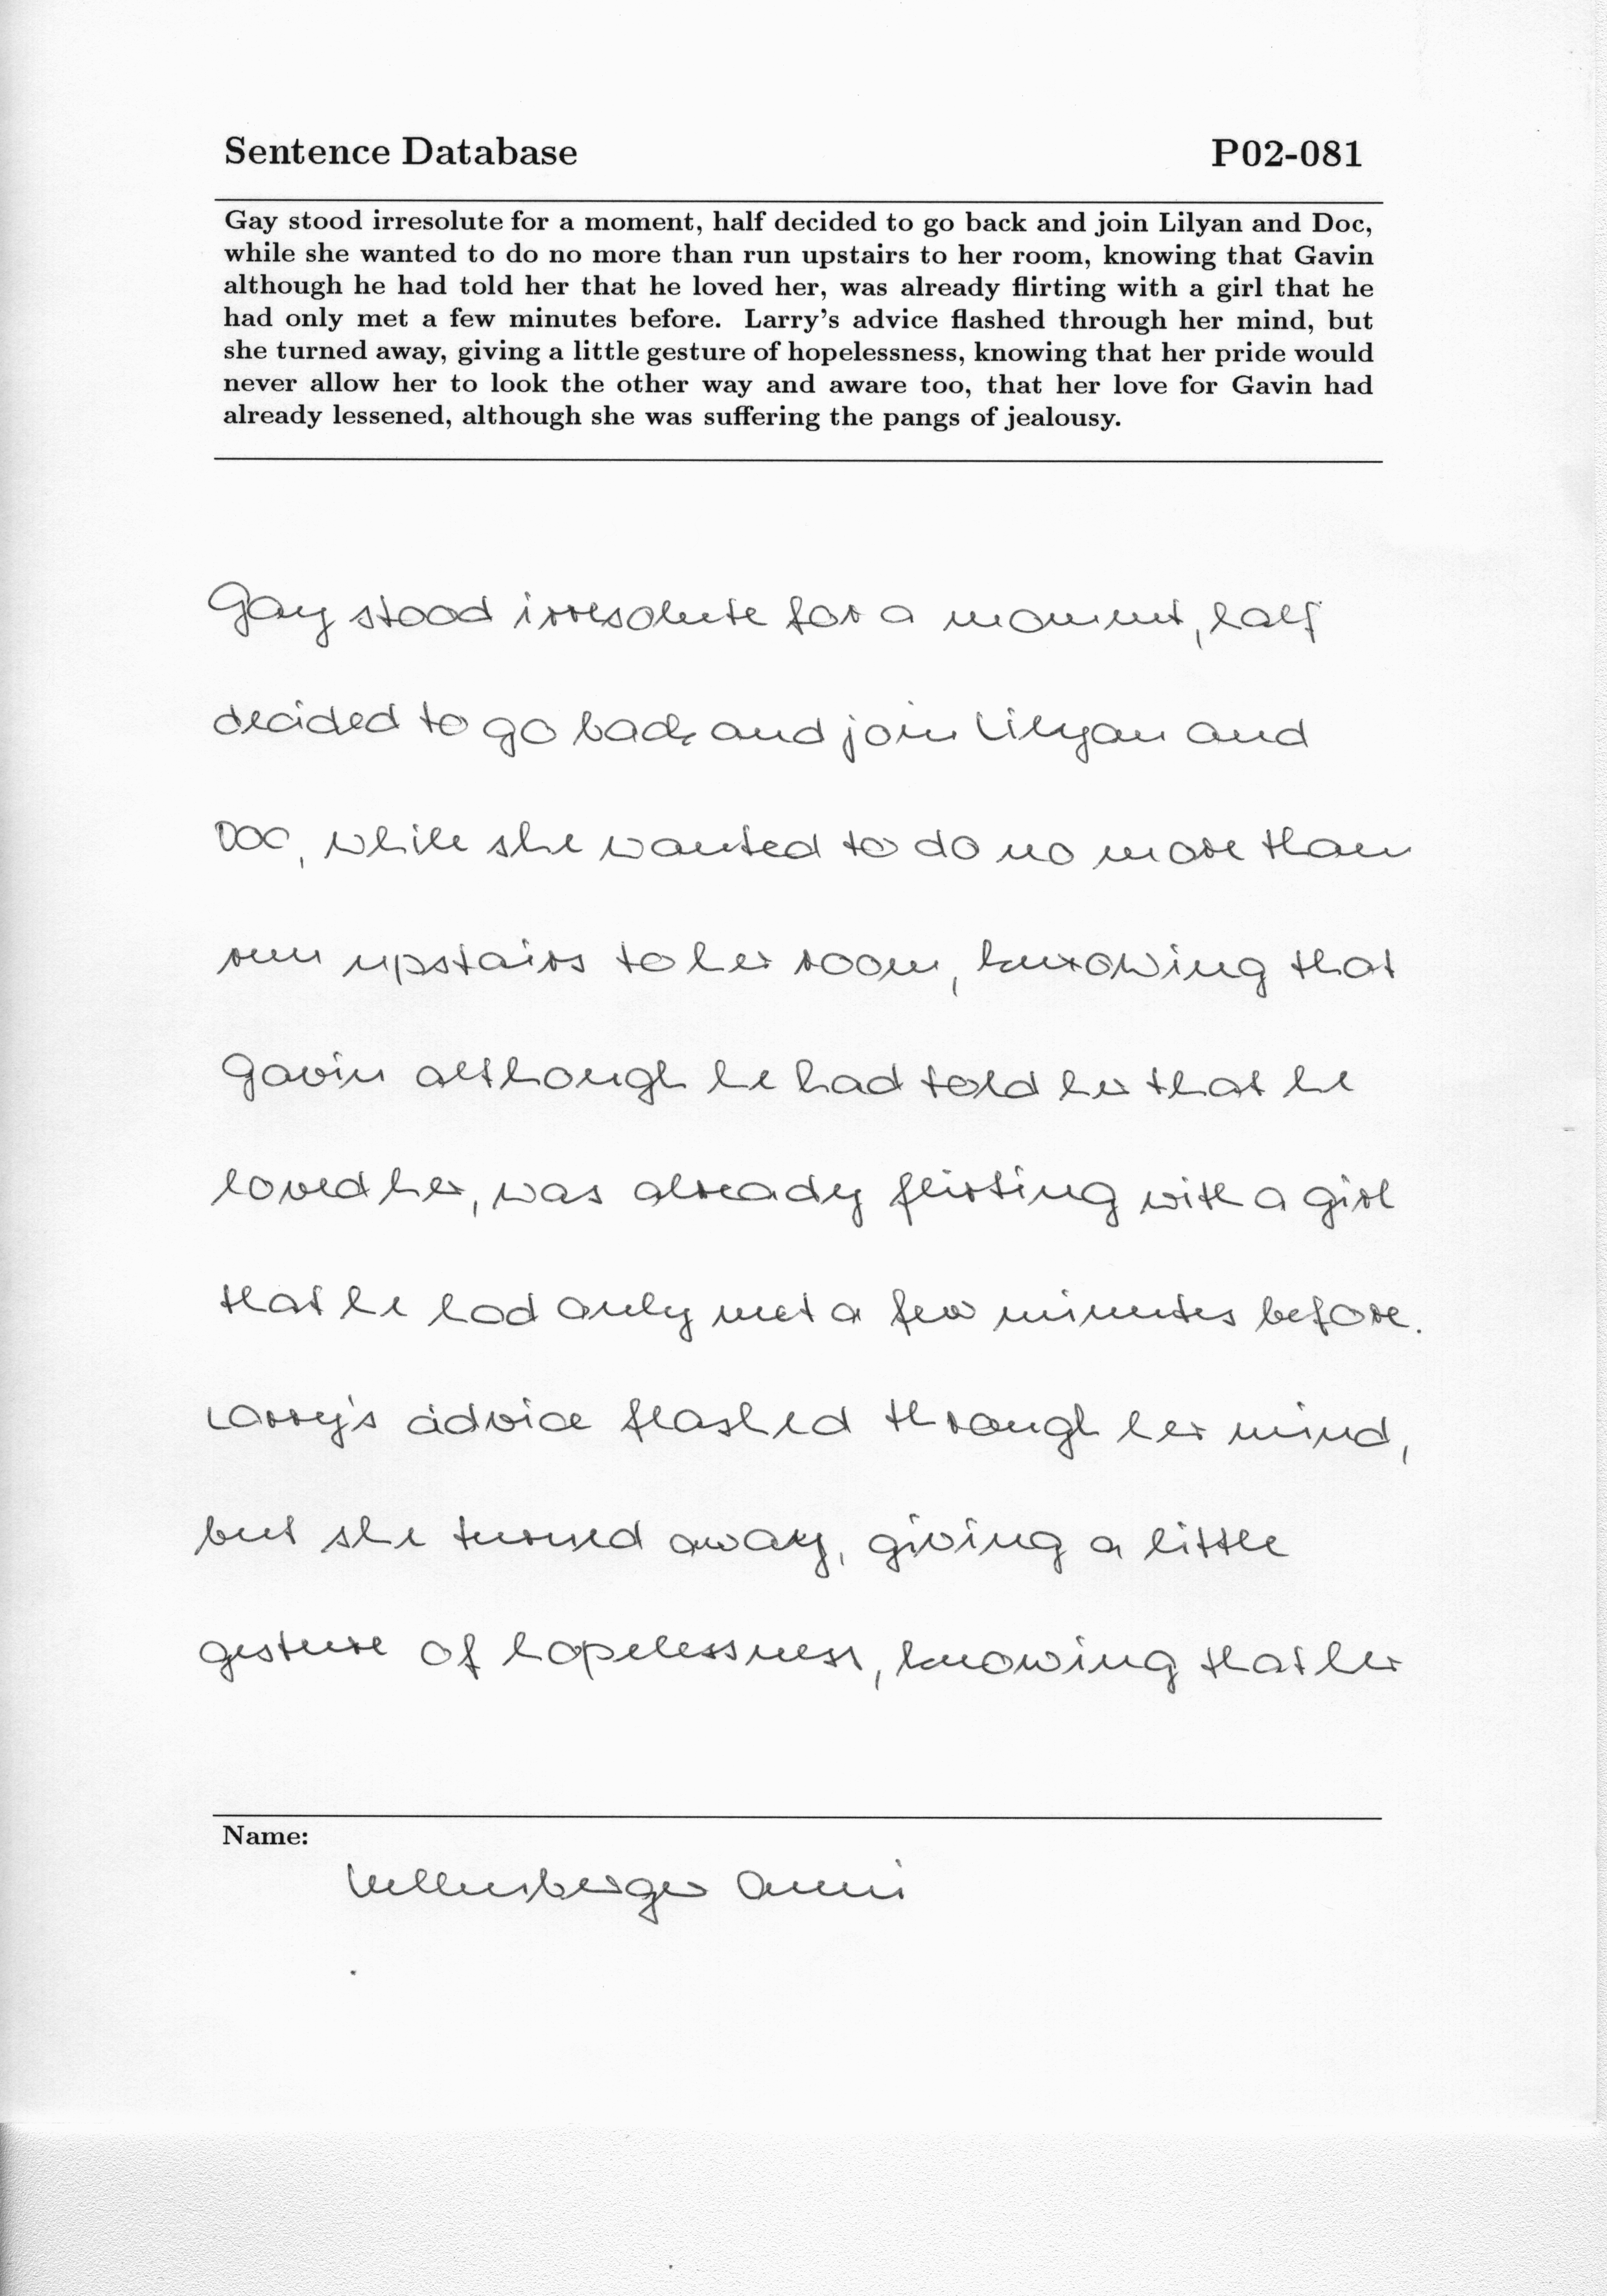 Sentence Database P02-081
Gay stood irresolute for a moment, half decided to go back and join Lilyan and Doc,
while she wanted to do no more than run upstairs to her room, knowing that Gavin
although he had told her that he loved her, was already flirting with a girl that he
had only met a few minutes before. Larry's advice flashed through her mind, but
she turned away, giving a little gesture of hopelessness, knowing that her pride would
never allow her to look the other way and aware too, that her love for Gavin had
already lessened, although she was suffering the pangs of jealousy.
Gay stood irresolute for a moment, half
decided to go back and join Lilyan and
Doc, while she wanted to do no more than
run upstairs to her room, knowing that
Gavin although he had told her that he
loved her, was already flirting with a girl
that he had only met a few minutes before.
Larry's advice flashed through her mind,
but she turned away, giving a little
gesture of hopelessness, knowing that her
Name:
Anni